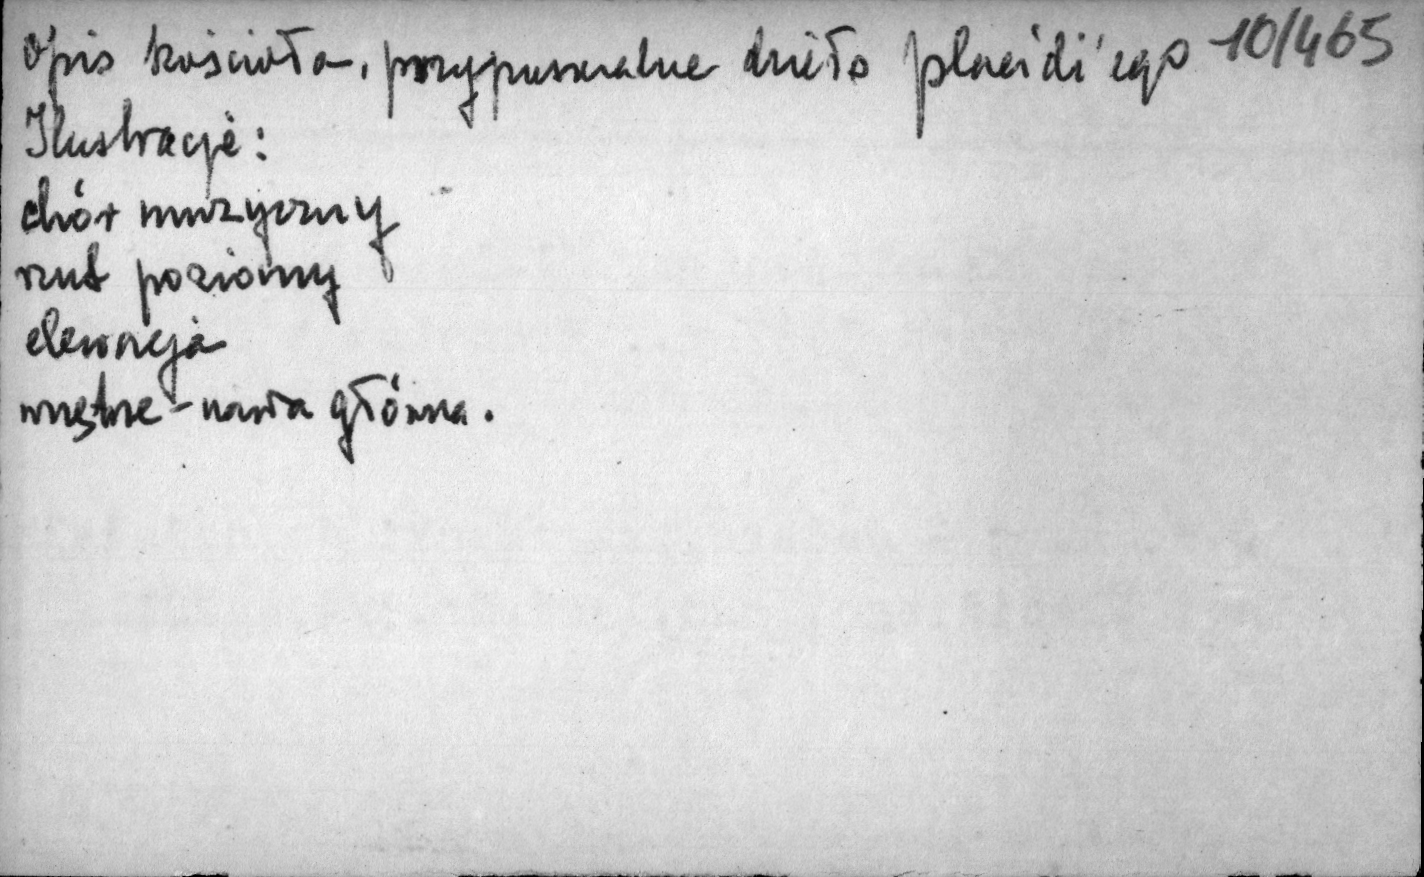 Opis kościoła, przypuszczalne dzieło placidi'ego 10/465
Ilustracje:
chór muzyczny
rzut poziomy
elewacja
wnętrze - nawa główna.